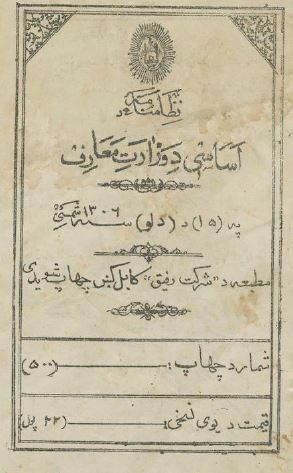 نظامنامه
اساسی د وزارت معارف
په (۱۵) د (دلو) سنه ۱۳۰۶ شمسی
مطبعه د "شرکت رفیق" کابل کښ چهاپ شویدی
شمار د چهاپ : (۵۰۰)
قیمت د یوی نسخی : (۲۲ پول)